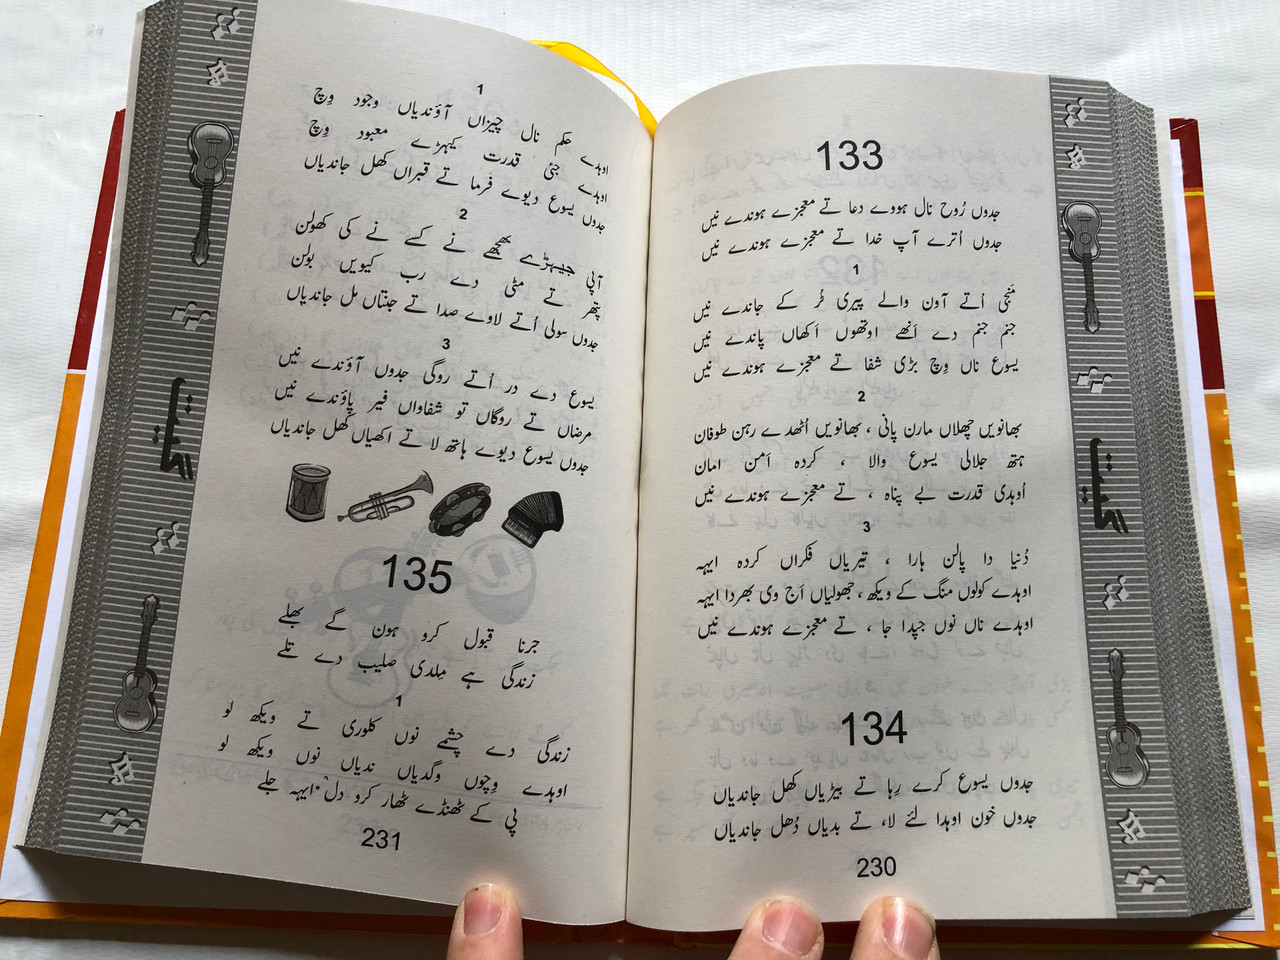 133
جدوں رُوح نال ہووے دعا تے معجزے ہوندے نیں
جدوں اُترے آپ خدا تے معجزے ہوندے نیں
1
منجی اُتے آون والے پیری ٹُر کے جاندے نیں
جنم جنم دے اَنھے اوتھوں اَکھاں پاندے نیں
یسوع ناں وِچ بڑی شفا تے معجزے ہوندے نیں
2
بھانویں چھلاں مارن پانی ، بھانویں اُٹھدے رہن طوفان
ہتھ جلالی یسوع والا ، کردہ اَمن امان
اُوہدی قدرت بے پناہ ، تے معجزے ہوندے نیں
3
دُنیا دا پالن ہارا ، تیریاں فکراں کردہ ایہہ
اوہدے کولوں منگ کے ویکھ ، جھولیاں اَج وی بھردا ایہہ
اوہدے ناں نوں جپدا جا ، تے معجزے ہوندے نیں
134
جدوں یسوع کرے رِہا تے بیڑیاں کھل جاندیاں
جدوں خون اوہدا لئے لاء تے بدیاں دُھل جاندیاں
230
گیت
1
اوہدے حکم نال چیزاں آؤندیاں وجود وِچ
اوہدے جئی قدرت کیہڑے معبود وِچ
جدوں یسوع دیوے فرما تے قبراں کھل جاندیاں
2
آپی جیہڑے بجھے نے کسے نے کی کھولن
پتھر تے مٹی دے رب کیویں بولن
جدوں سولی اُتے لاوے صدا تے جنتاں مل جاندیاں
3
یسوع دے در اُتے روگی جدوں آؤندے نیں
مرضاں تے روگاں تو شفاواں فیر پاؤندے نیں
جدوں یسوع دیوے ہاتھ لا تے اکھیاں کھل جاندیاں
135
جرنا قبول کرو ہون گے بھلے
زندگی ہے مِلدی صلیب دے تلے
1
زندگی دے چشمے نوں کلوری تے ویکھ لو
اوہدے وِچوں وگدیاں ندیاں نوں ویکھ لو
پی کے ٹھنڈے ٹھار کرو دل ایہہ جلے
231
گیت